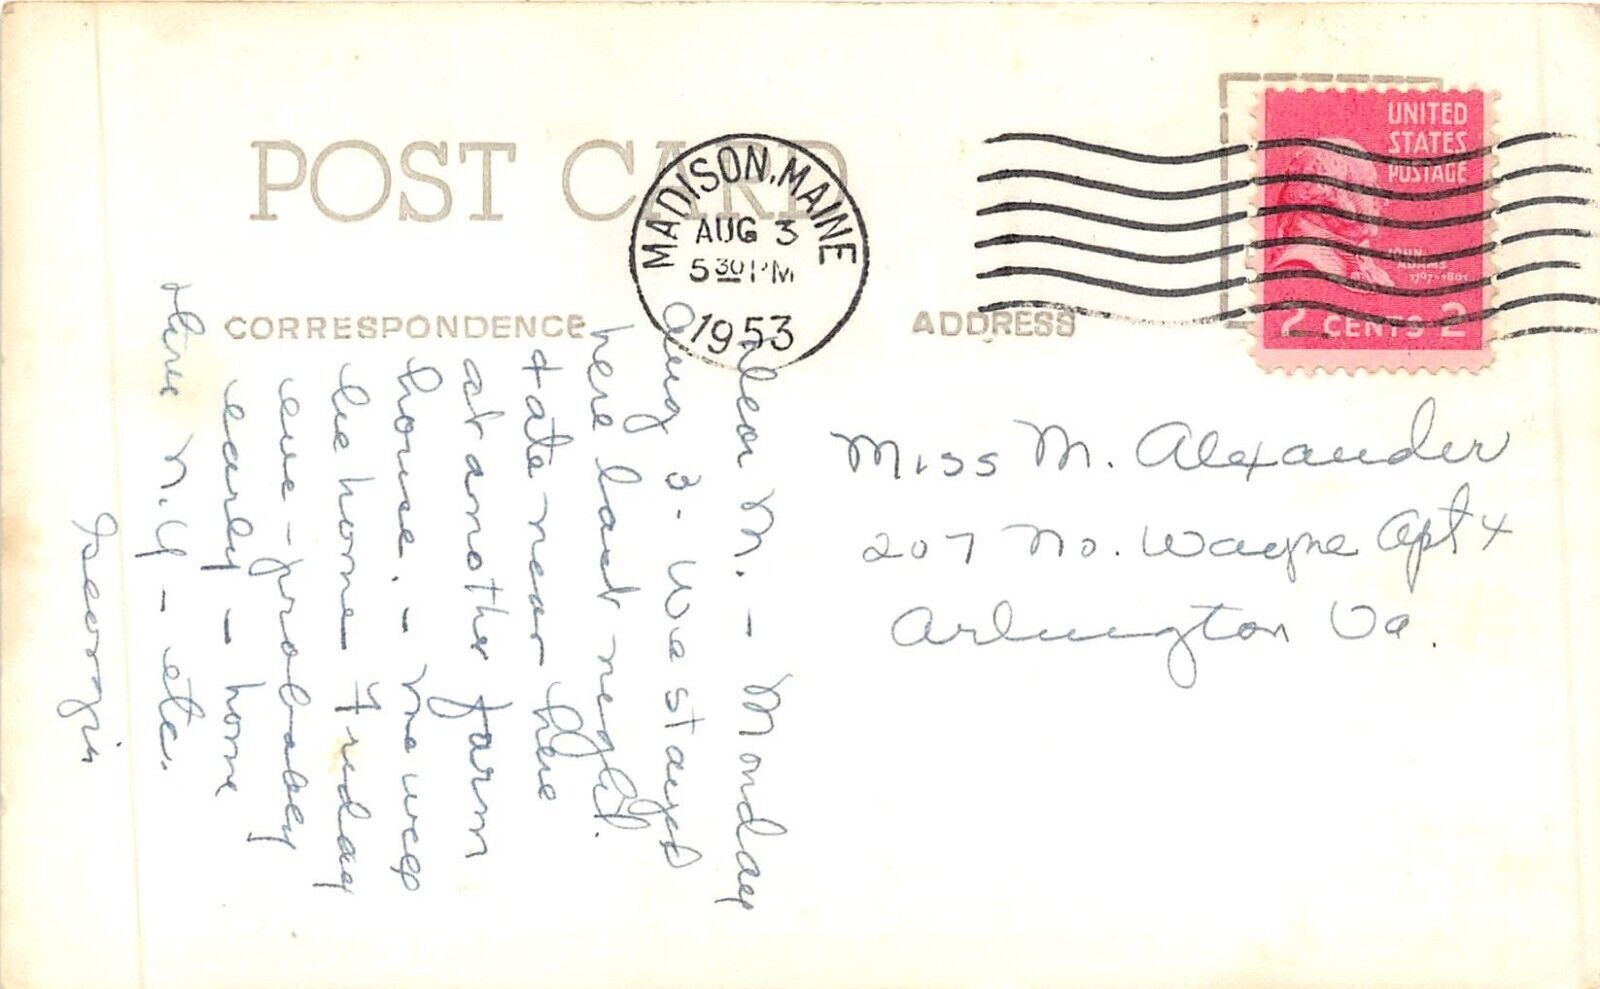 POST CARD
MADISON, MAINE
AUG 3
5 30 PM
1953
UNITED
STATES
POSTAGE
JOHN
ADAMS
1797-1801
2 CENTS 2
CORRESPONDENCE
ADDRESS
Dear M. - Monday
Aug 3 - We stayed
here last night.
+ ate near here
at another farm
house. - We will
be home Friday
eve - probably
early - home
thru N.Y - etc.
Georgia
Miss M. Alexander
207 No. Wayne Apt 4
Arlington Va.